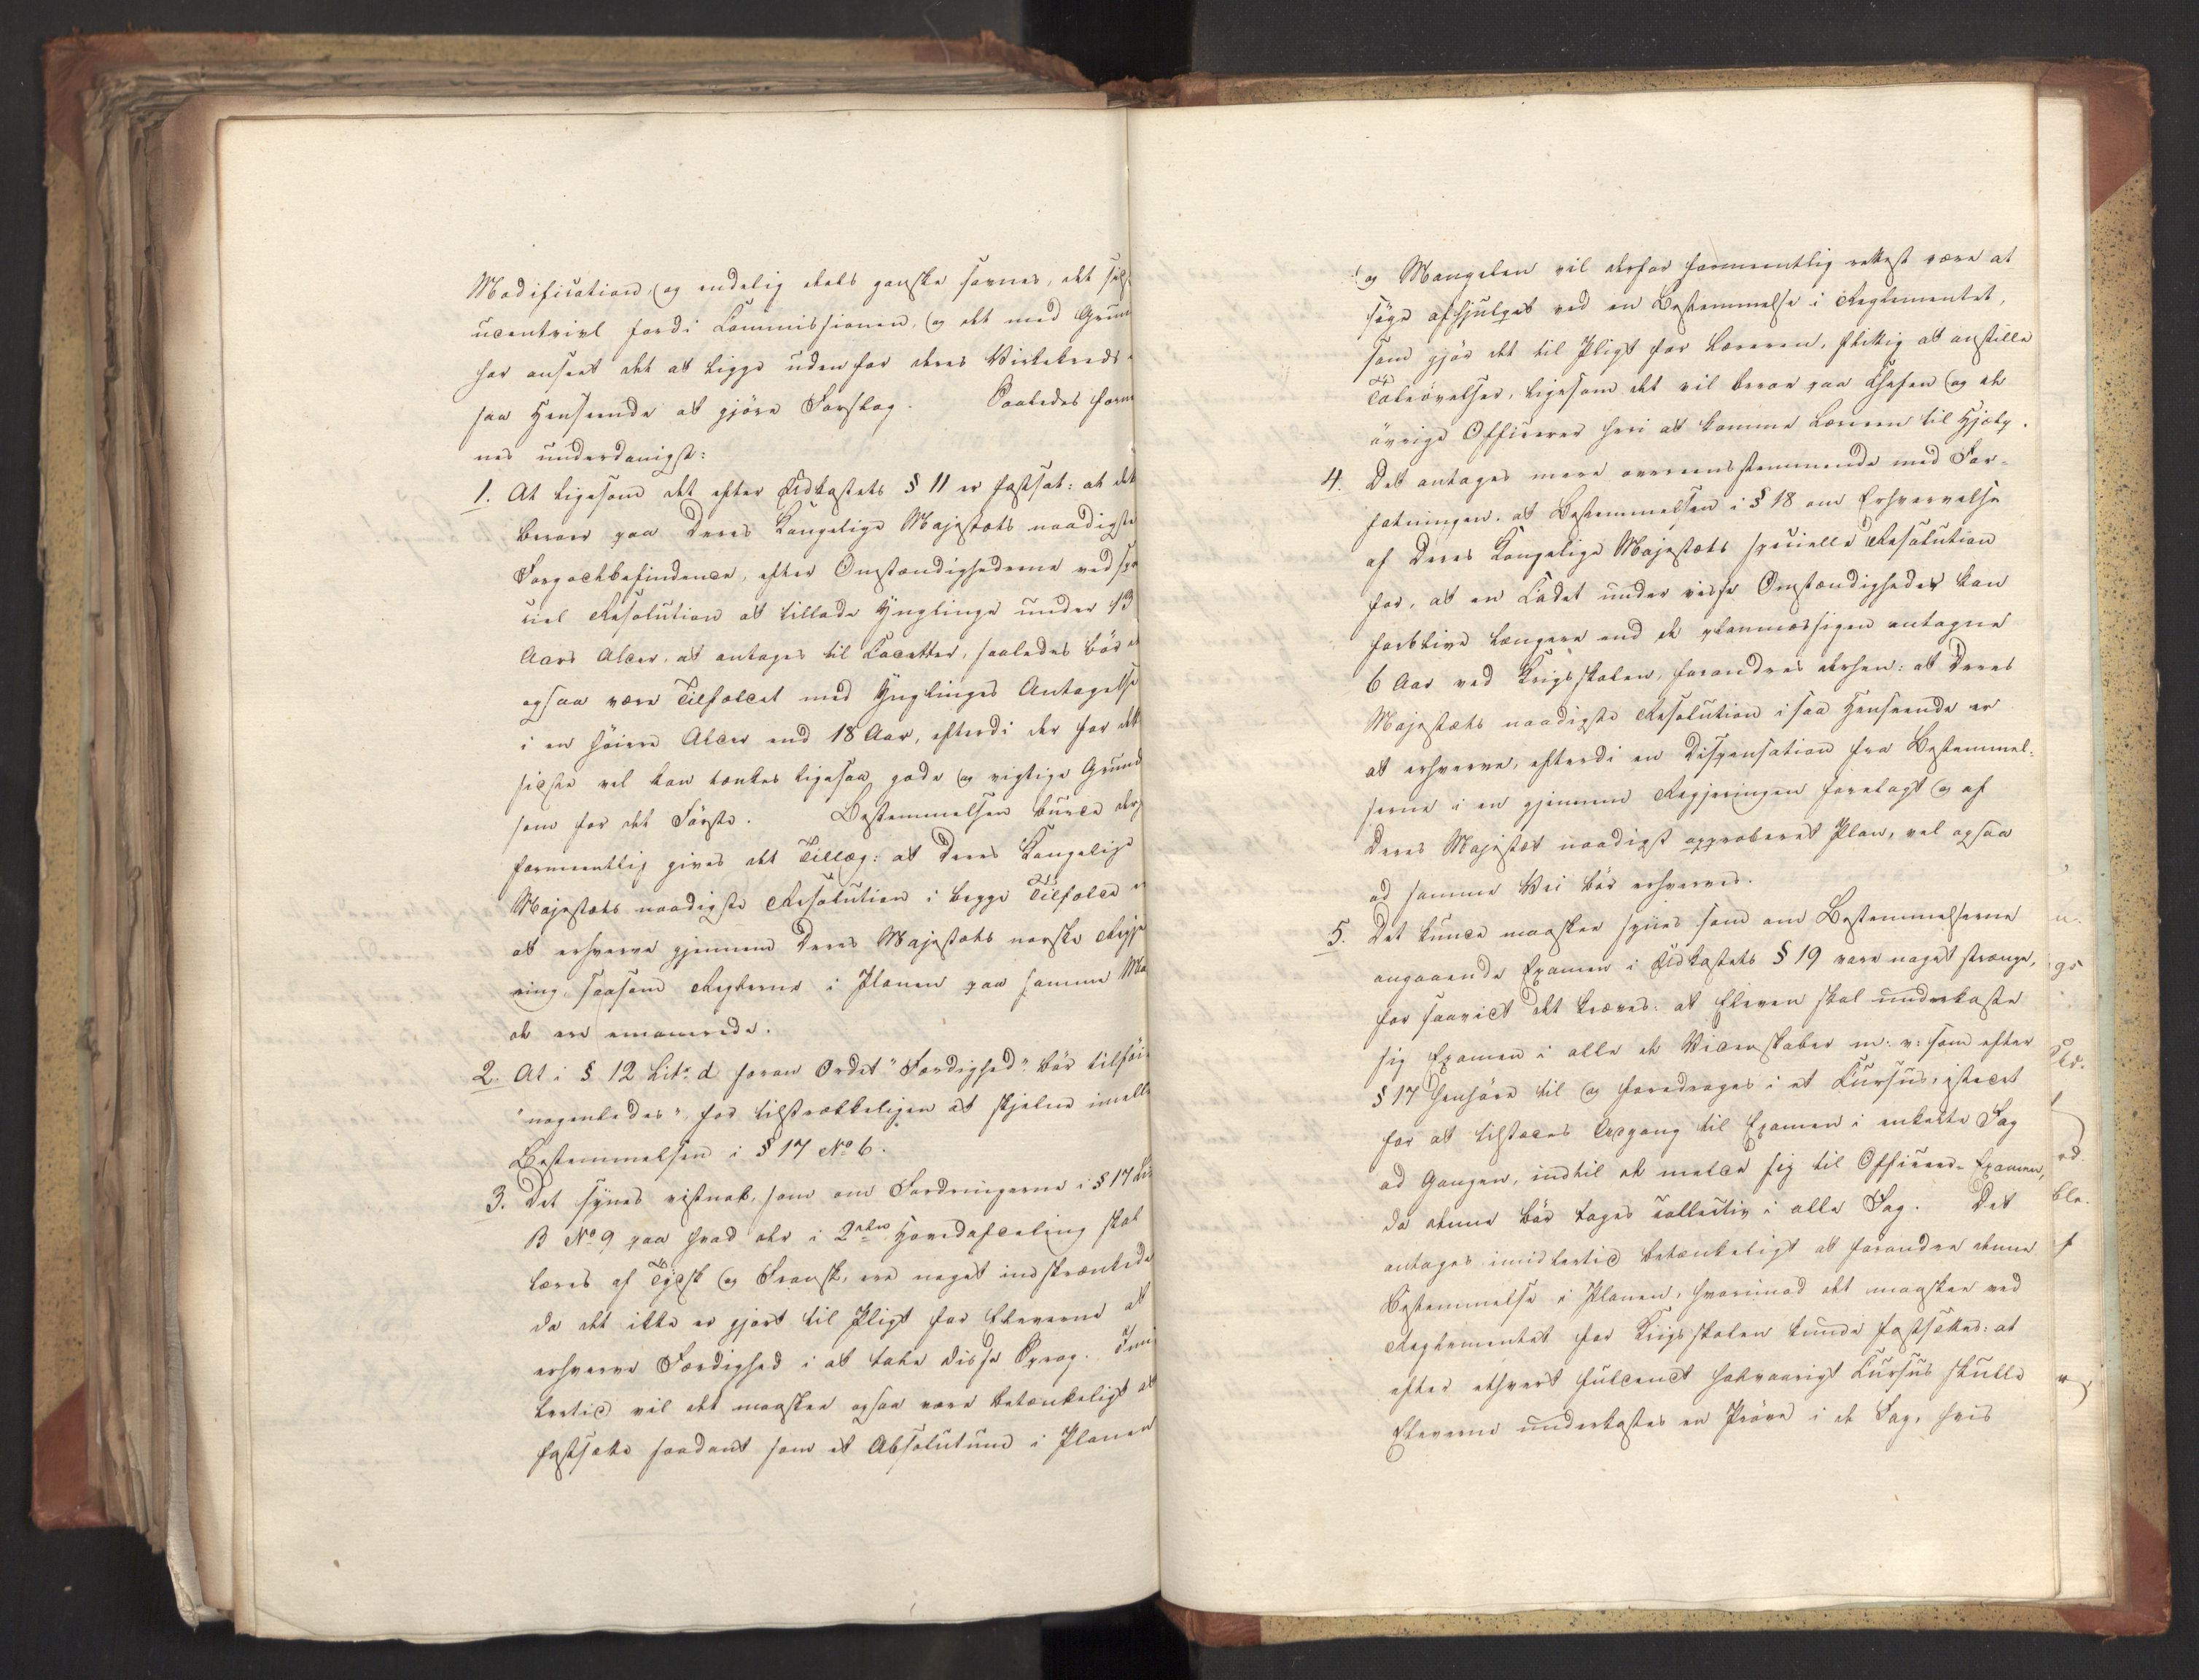 Modification og endelig deels ganske savnes, det sidste
ucentvivl fordi Commissionen, og det med Grund
har anseet det at ligge udenfor deres Virkekreds i
saa Henseende at gjöre Forslag. Saaledes forme
nes underdanigst:
1. At ligesom det efter Udkastets § 11 er fastsat: at det
beroer paa Deres Kongelige Majestæts naadigste
Forgodtbefindende, efter Omstændighederne ved spe
ciel Resolution at tillade Ynglinge under 13
Aars Alder, at antages til Cadetter, saaledes bör det
ogsaa være Tilfældet med Ynglinges Antagelse
i en höiere Alder end 18 Aar, efterdi der for det
sidste vel kan tænkes ligesaa gode og vigtige Grunde
som for det Förste. Bestemmelsen burde der
formeentlig gives det Tillæg: at Deres Kongelige
Majestæts naadigste Resolution i begge Tilfælde er
at erhverve gjennem Deres Majestæts norske Regje
ring, saasom Reglerne i Planen paa samme Ma
de ere emanerede.
2. At i § 12 Litr. d foran Ordet "Færdighed" bör tilföi
"nogenledes", for tilstrækkeligen at skjelne imelle
Bestemmelsen i § 17 No 6.
3. Det synes vistnok, som om Fordringerne i § 17 Lit
B No 9 paa hvad der i 2den Hovedafdeling skal
læres af Tydsk og Fransk, ere noget indskrænkede
da det ikke er gjort til Pligt for Eleverne at
erhverve Færdighed i at tale disse Sprog. Imid
lertid vil det maaskee ogsaa være betænkeligt at
fastsætte saadant som et Absolutum i Planen
og Mangelen vil derfor formeentlig rettest være at
söge afhjulpet ved en Bestemmelse i Reglementet,
som gjör det til Pligt for Læreren, flittig at anstille
Taleövelser, ligesom det vil beroe paa Chefen og de
övrige Officerer heri at komme Læreren til Hjælp.
4. Det antages mere overeensstemmende med For-
fatningen, at Bestemmelsen i § 18 om Erhvervelse
af Deres Kongelige Majestæts specielle Resolution
for, at en Cadet under visse Omstændigheder kan
forblive længere end de planmæssigen antagne
6 Aar ved Krigsskolen, forandres derhen: at Deres
Majestæts naadigste Resolution i saa Henseende er
at erhverve, efterdi en Dispensation fra Bestemmel-
serne i en gjennem Regjeringen forelagt og af
Deres Majestæt naadigst approberet Plan, vel ogsaa
ad samme Vei bör erhverves.
5. Det kunde maaskee synes som om Bestemmelserne
angaaende Examen i Udkastets § 19 vare noget strænge,
for saavidt det kræves: at Eleven skal underkaste
sig Examen i alle de Videnskaber m: v: som efter
§ 17 henhöre til og foredrages i et Cursus, istedet
for at tilstedes Adgang til Examen i enkelte Fag
ad Gangen, indtil de melde sig til Officeers-Examen,
da denne bör tages collectiv i alle Fag. Det
antages imidlertid betænkeligt at forandre denne
Bestemmelse i Planen, hvorimod det maaskee ved
Reglementet for Krigsskolen kunde fastsættes: at
efter ethvert fuldendt halvaarigt Cursus skulle
Eleverne underkastes en Pröve i de Fag, hvis